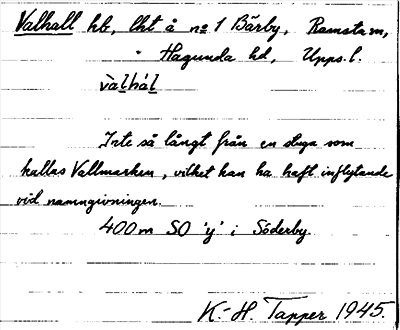 Valhall hb, lht å no 1 Bärby, Ramsta sn,
Hagunda hd, Upps. l.
vàlhál
Inte så långt från en stuga som
kallas Vallmarken, vilket kan ha haft inflytande
vid namngivningen.
400 m SO 'y' i Söderby.
K.-H. Tapper 1945.